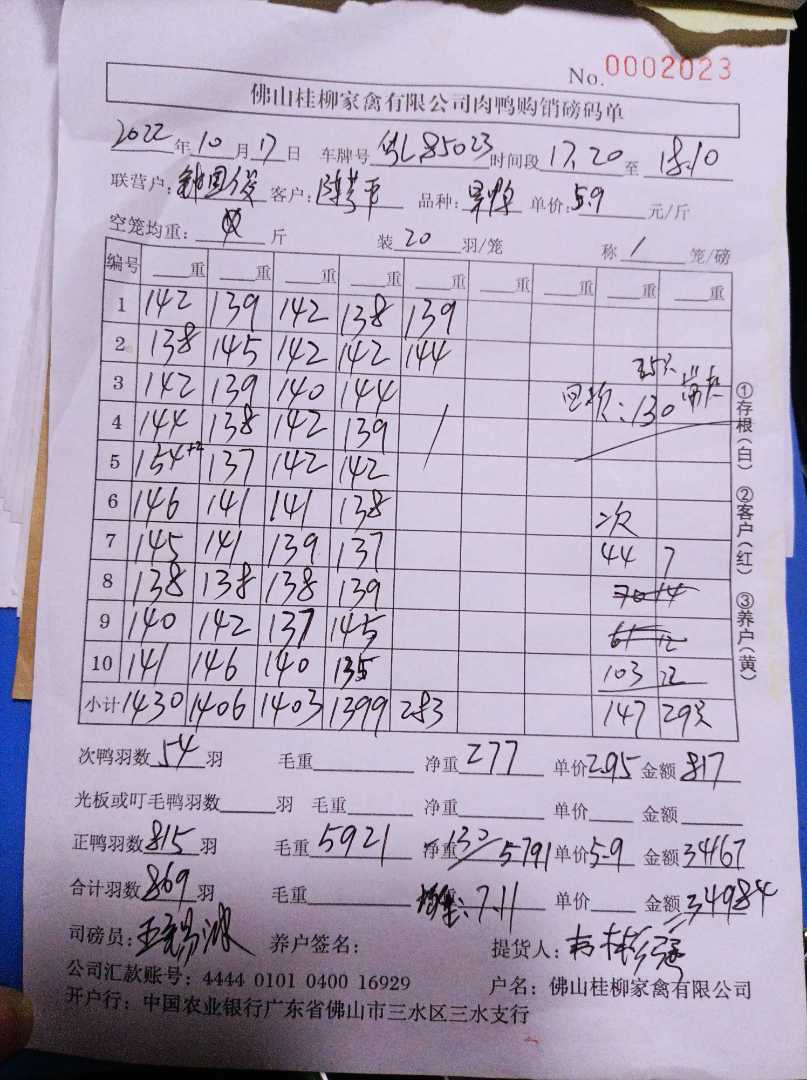 No. 0002023
佛山桂柳家禽有限公司肉鸭购销磅码单
2022年10月17日 车牌号 85023 时间段 17.20 至 18.10
联营户: 客户: 品种: 单价: 5.9 元/斤
空笼均重: 斤 装 20 羽/笼 称 1 笼/磅
编号 重 重 重 重 重 重 重 重 重
1 142 139 142 138 139
2 138 145 142 142 144
3 142 139 140 144 : 130
4 144 138 142 139
5 154+2 137 142 142
6 146 141 141 138 次
7 145 141 139 137 44 7
8 138 138 138 139 70 14
9 140 142 137 145 61 12
10 141 146 140 135 103 22
小计 1430 1406 1403 1399 283 147 29只
次鸭羽数 54 羽 毛重 净重 277 单价 2.95 金额 817
光板或叮毛鸭羽数 羽 毛重 净重 单价 金额
正鸭羽数 815 羽 毛重 5921 净重 130 5791 单价 5.9 金额 34167
合计羽数 869 羽 毛重 均重: 7.11 单价 金额 34984
司磅员: 养户签名: 提货人:
公司汇款账号: 4444 0101 0400 16929 户名: 佛山桂柳家禽有限公司
开户行: 中国农业银行广东省佛山市三水区三水支行
①存根(白) ②客户(红) ③养户(黄)